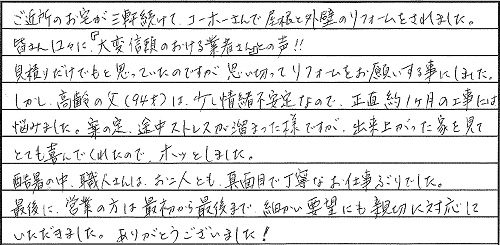 ご近所のお宅が三軒続けて、コーホーさんで屋根と外壁のリフォームをされました。
皆さん口々に『大変信頼のおける業者さん』との声!!
見積りだけでもと思っていたのですが、思い切ってリフォームをお願いする事にしました。
しかし、高齢の父(94才)は、少し情緒不安定なので、正直約1ヶ月の工事には
悩みました。案の定、途中ストレスが溜まった様ですが、出来上がった家を見て
とても喜んでくれたので、ホッとしました。
酷暑の中、職人さんは、お二人とも、真面目で丁寧なお仕事ぶりでした。
最後に、営業の方は最初から最後まで、細かい要望にも親切に対応して
いただきました。ありがとうございました!